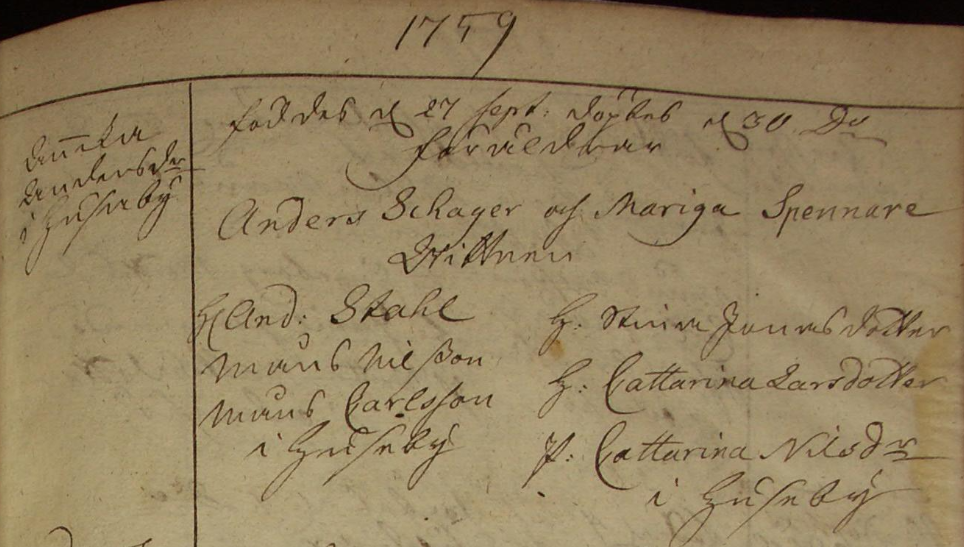 1759
Annika
Andersdr
i Huseby
föddes d 27 sept: döptes d 30 Do
föräldrar
Anders Schager och Mariga Spennare
Wittnen
And: Stahl
Måns Nilsson
Måns Carlsson
i Huseby
H: Stina Jonasdotter
H: Cattarina Larsdotter
P: Cattarina Nilsdr
i Huseby